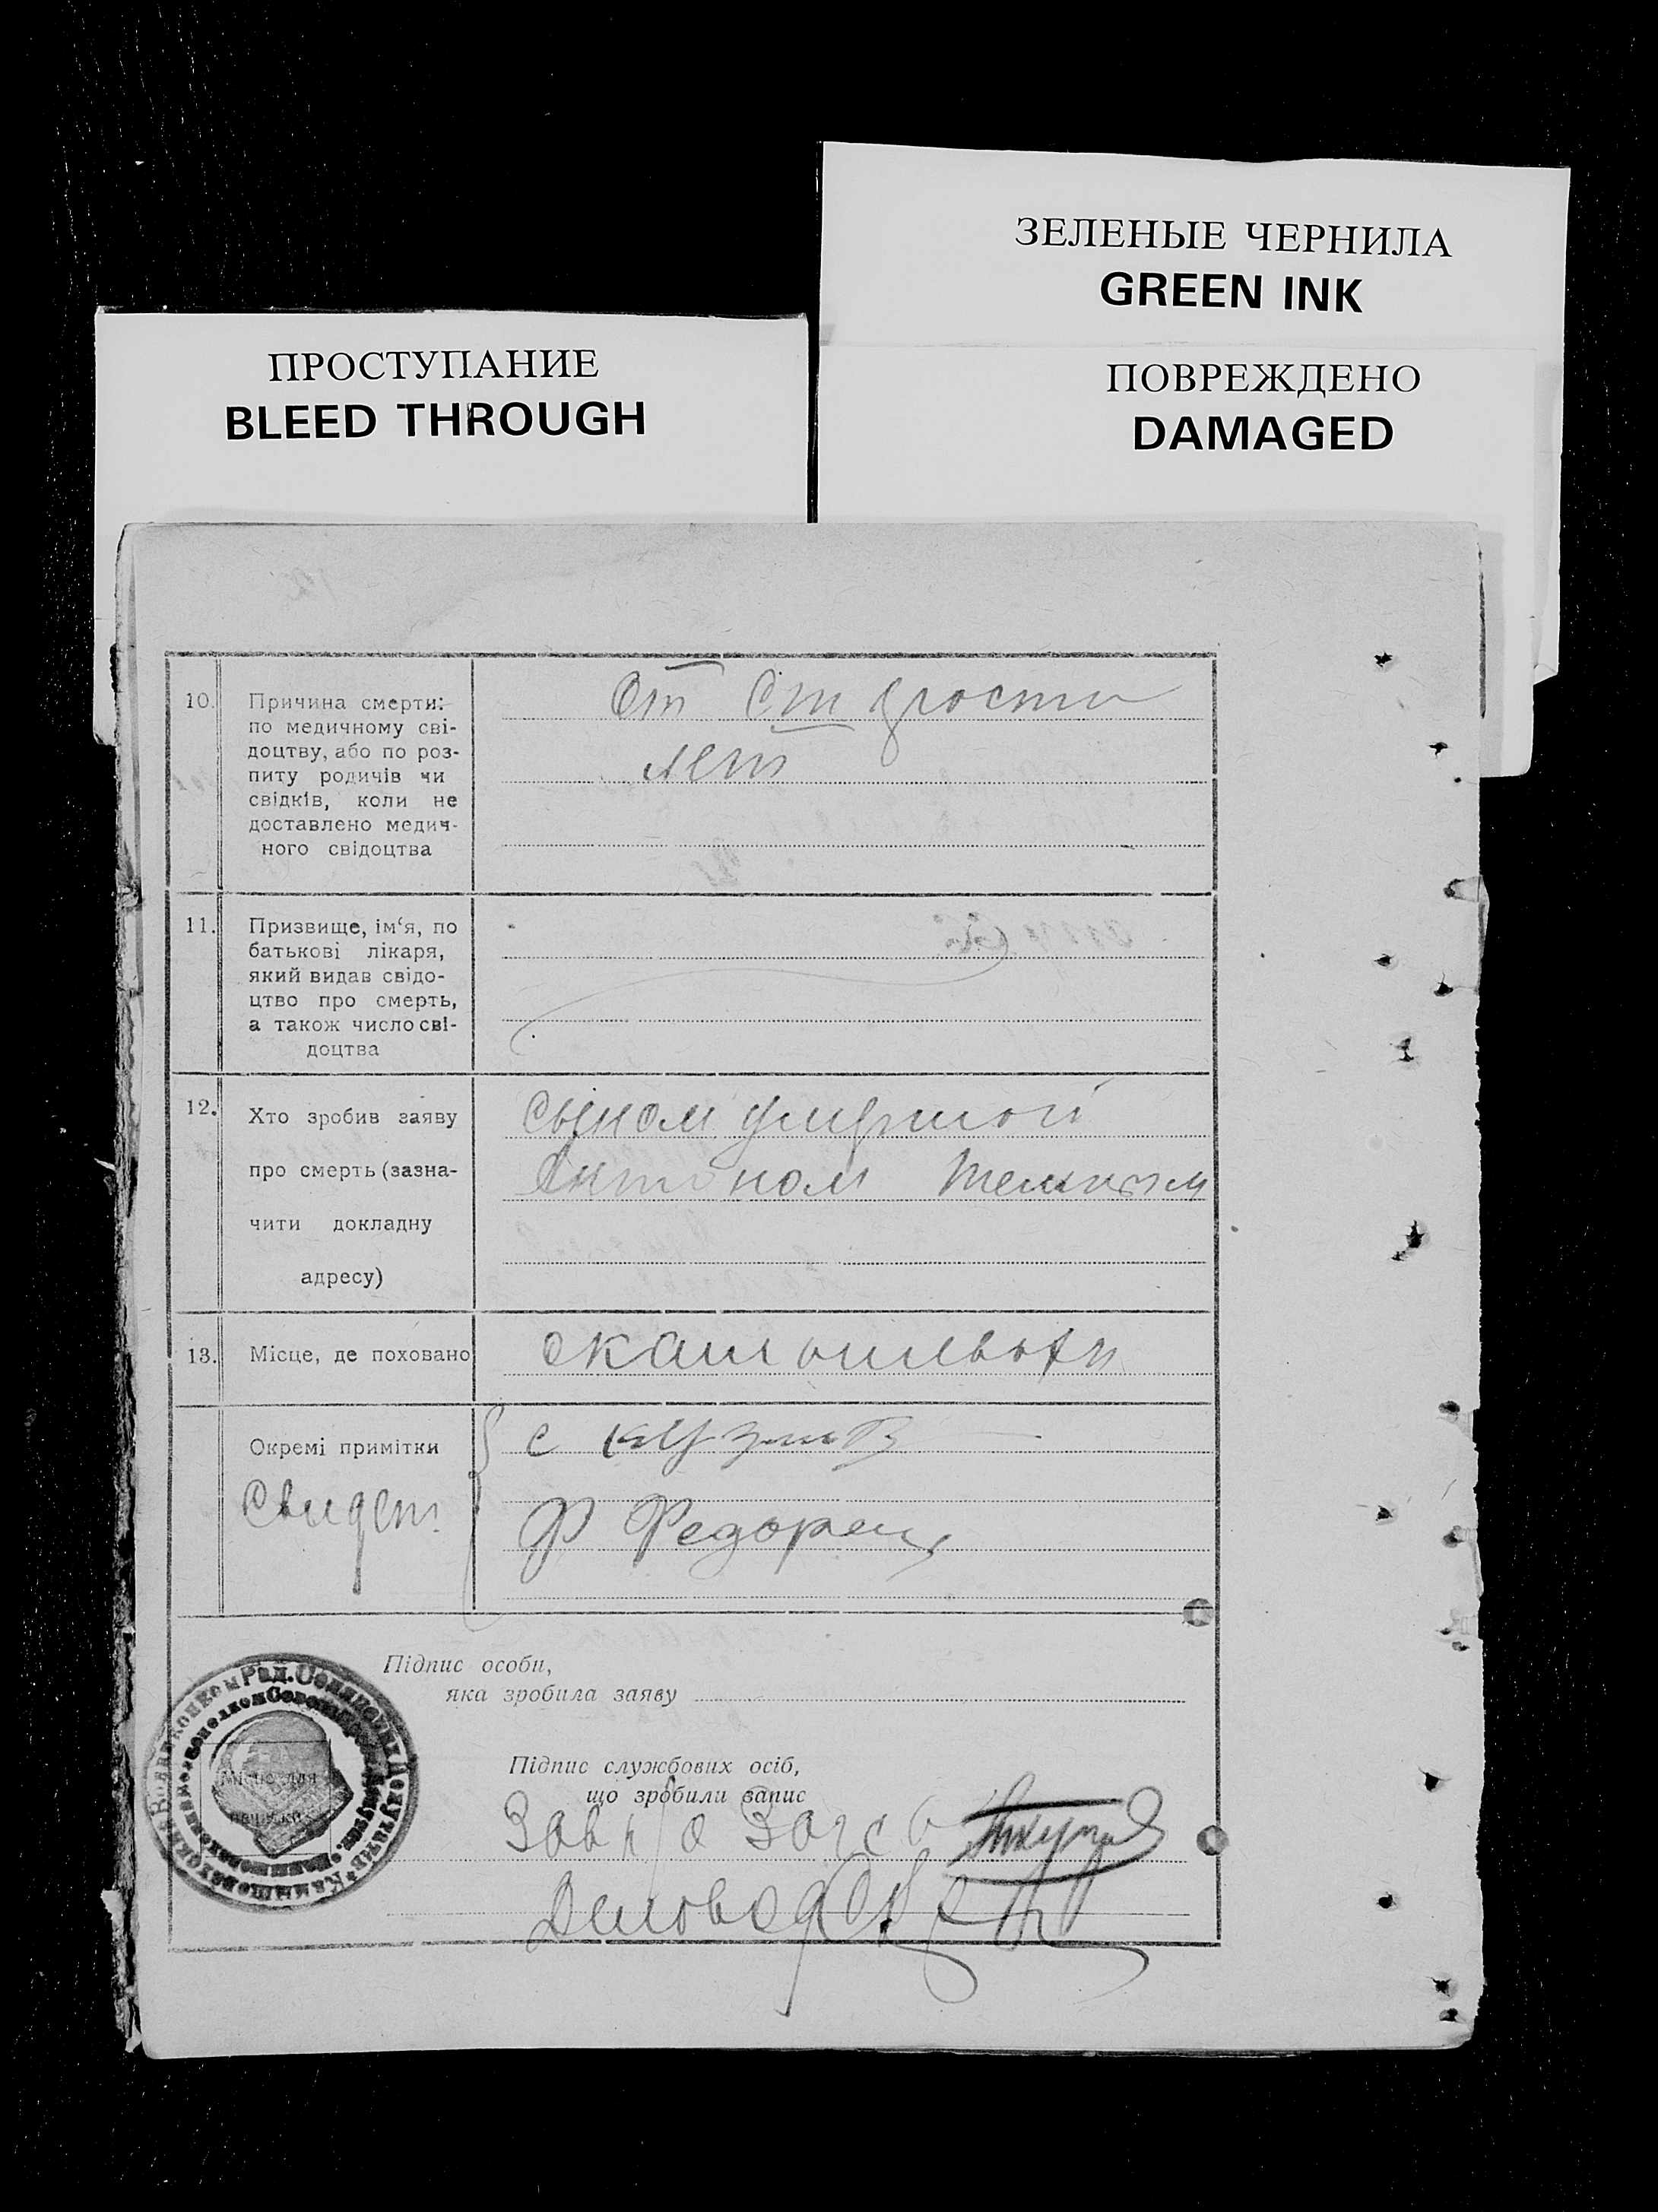 ЗЕЛЕНЫЕ ЧЕРНИЛА
GREEN INK
ПРОСТУПАНИЕ
BLEED THROUGH
ПОВРЕЖДЕНО
DAMAGED
10. Причина смерти:
по медичному сві-
доцтву, або по роз-
питу родичів чи
свідків, коли не
доставлено медич-
ного свідоцтва
От старости
лет
11. Призвище, ім‘я, по
батькові лікаря,
який видав свідо-
цтво про смерть,
а також число сві-
доцтва
12. Хто зробив заяву
про смерть (зазна-
чити докладну
адресу)
Сыном умершой
Антоном
13. Місце, де поховано
Окремі примітки
Свидет.
с
Ф Федорец
Підпис особи,
яка зробила заяву
Підпис службових осіб,
що зробили запис
Місце для
печатки
Зав п/о Загс
Деловод